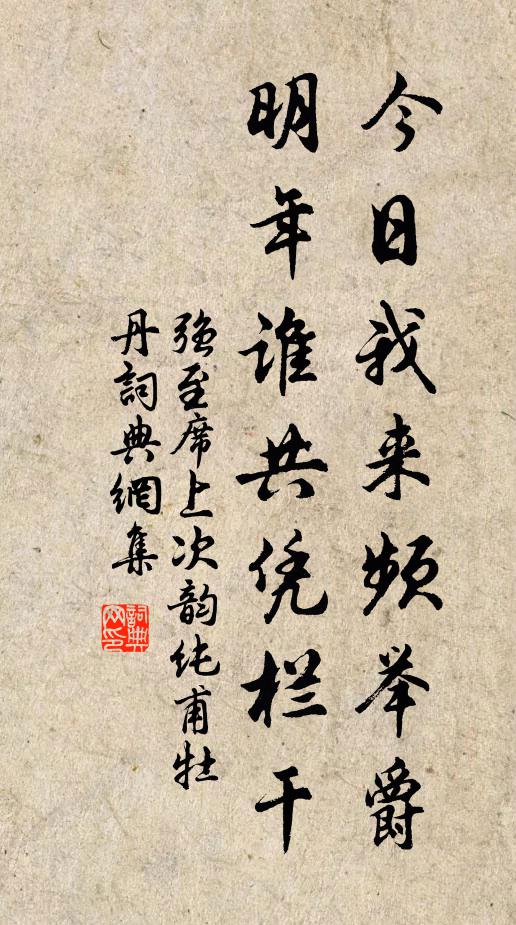 今日我来频举爵
明年谁共凭栏干
强至席上次韵纯甫牡
丹詞典網集
詞典
网印